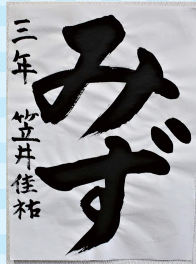 みず
三年 笠井佳祐